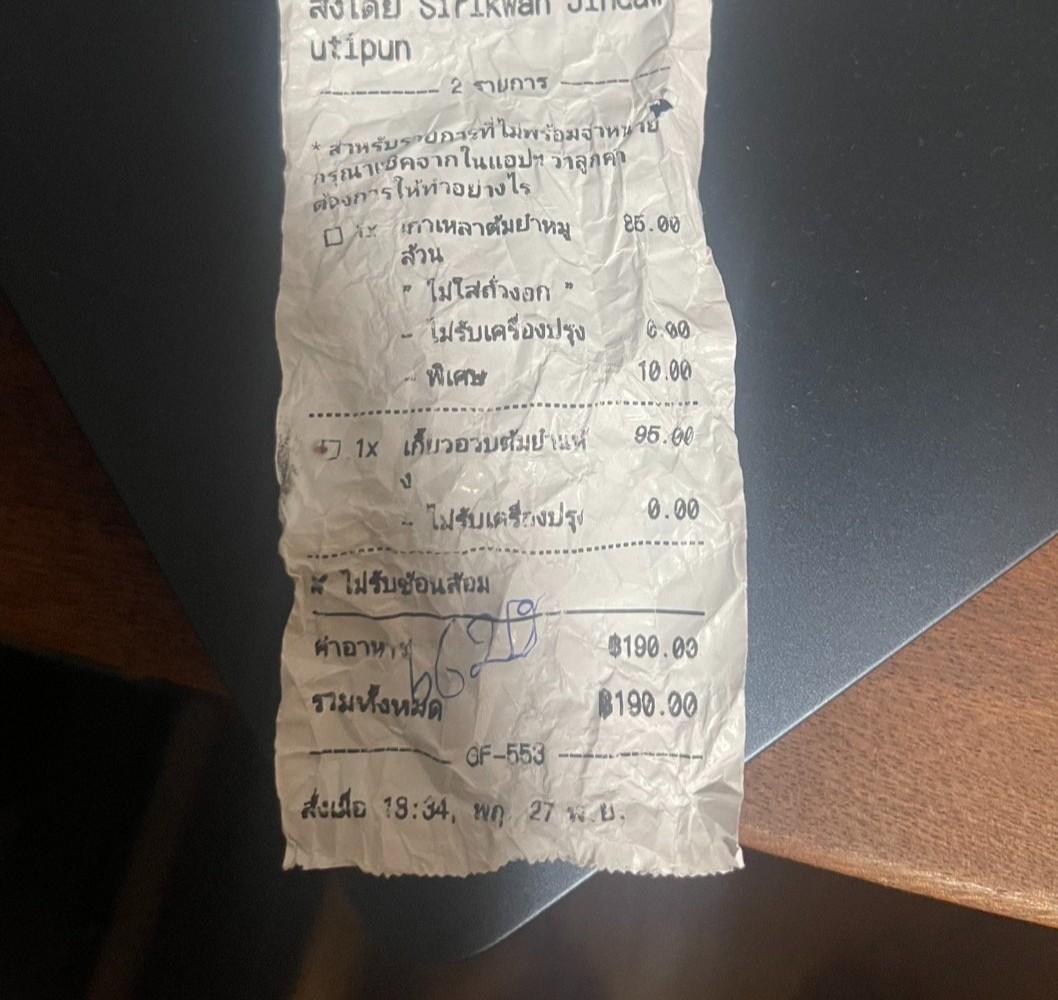 สั่งโดย Sirikwan Jindaw
utipun
2 รายการ
* สำหรับรายการที่ไม่พร้อมจำหน่าย
กรุณาเช็คจากในแอปฯ ว่าลูกค้า
ต้องการให้ทำอย่างไร
1x เกาเหลาต้มยำหมู 85.00
ล้วน
" ไม่ใส่ถั่วงอก "
- ไม่รับเครื่องปรุง 0.00
- พิเศษ 10.00
1x เกี๊ยวอวบต้มยำแห้ 95.00
ง
- ไม่รับเครื่องปรุง 0.00
✗ ไม่รับช้อนส้อม
ค่าอาหาร ฿190.00
รวมทั้งหมด ฿190.00
GF-553
สั่งเมื่อ 18:34, พฤ. 27 พ.ย.